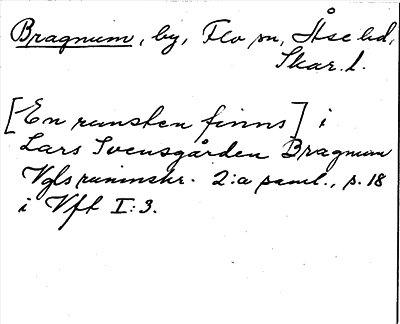 Bragnum, by, Flo sn, Åse hd,
Skar. l.
[En runsten finns] i
Lars Svensgården Bragnum
Vgls runinskr. 2:a saml., s. 18
i Vft I:3.